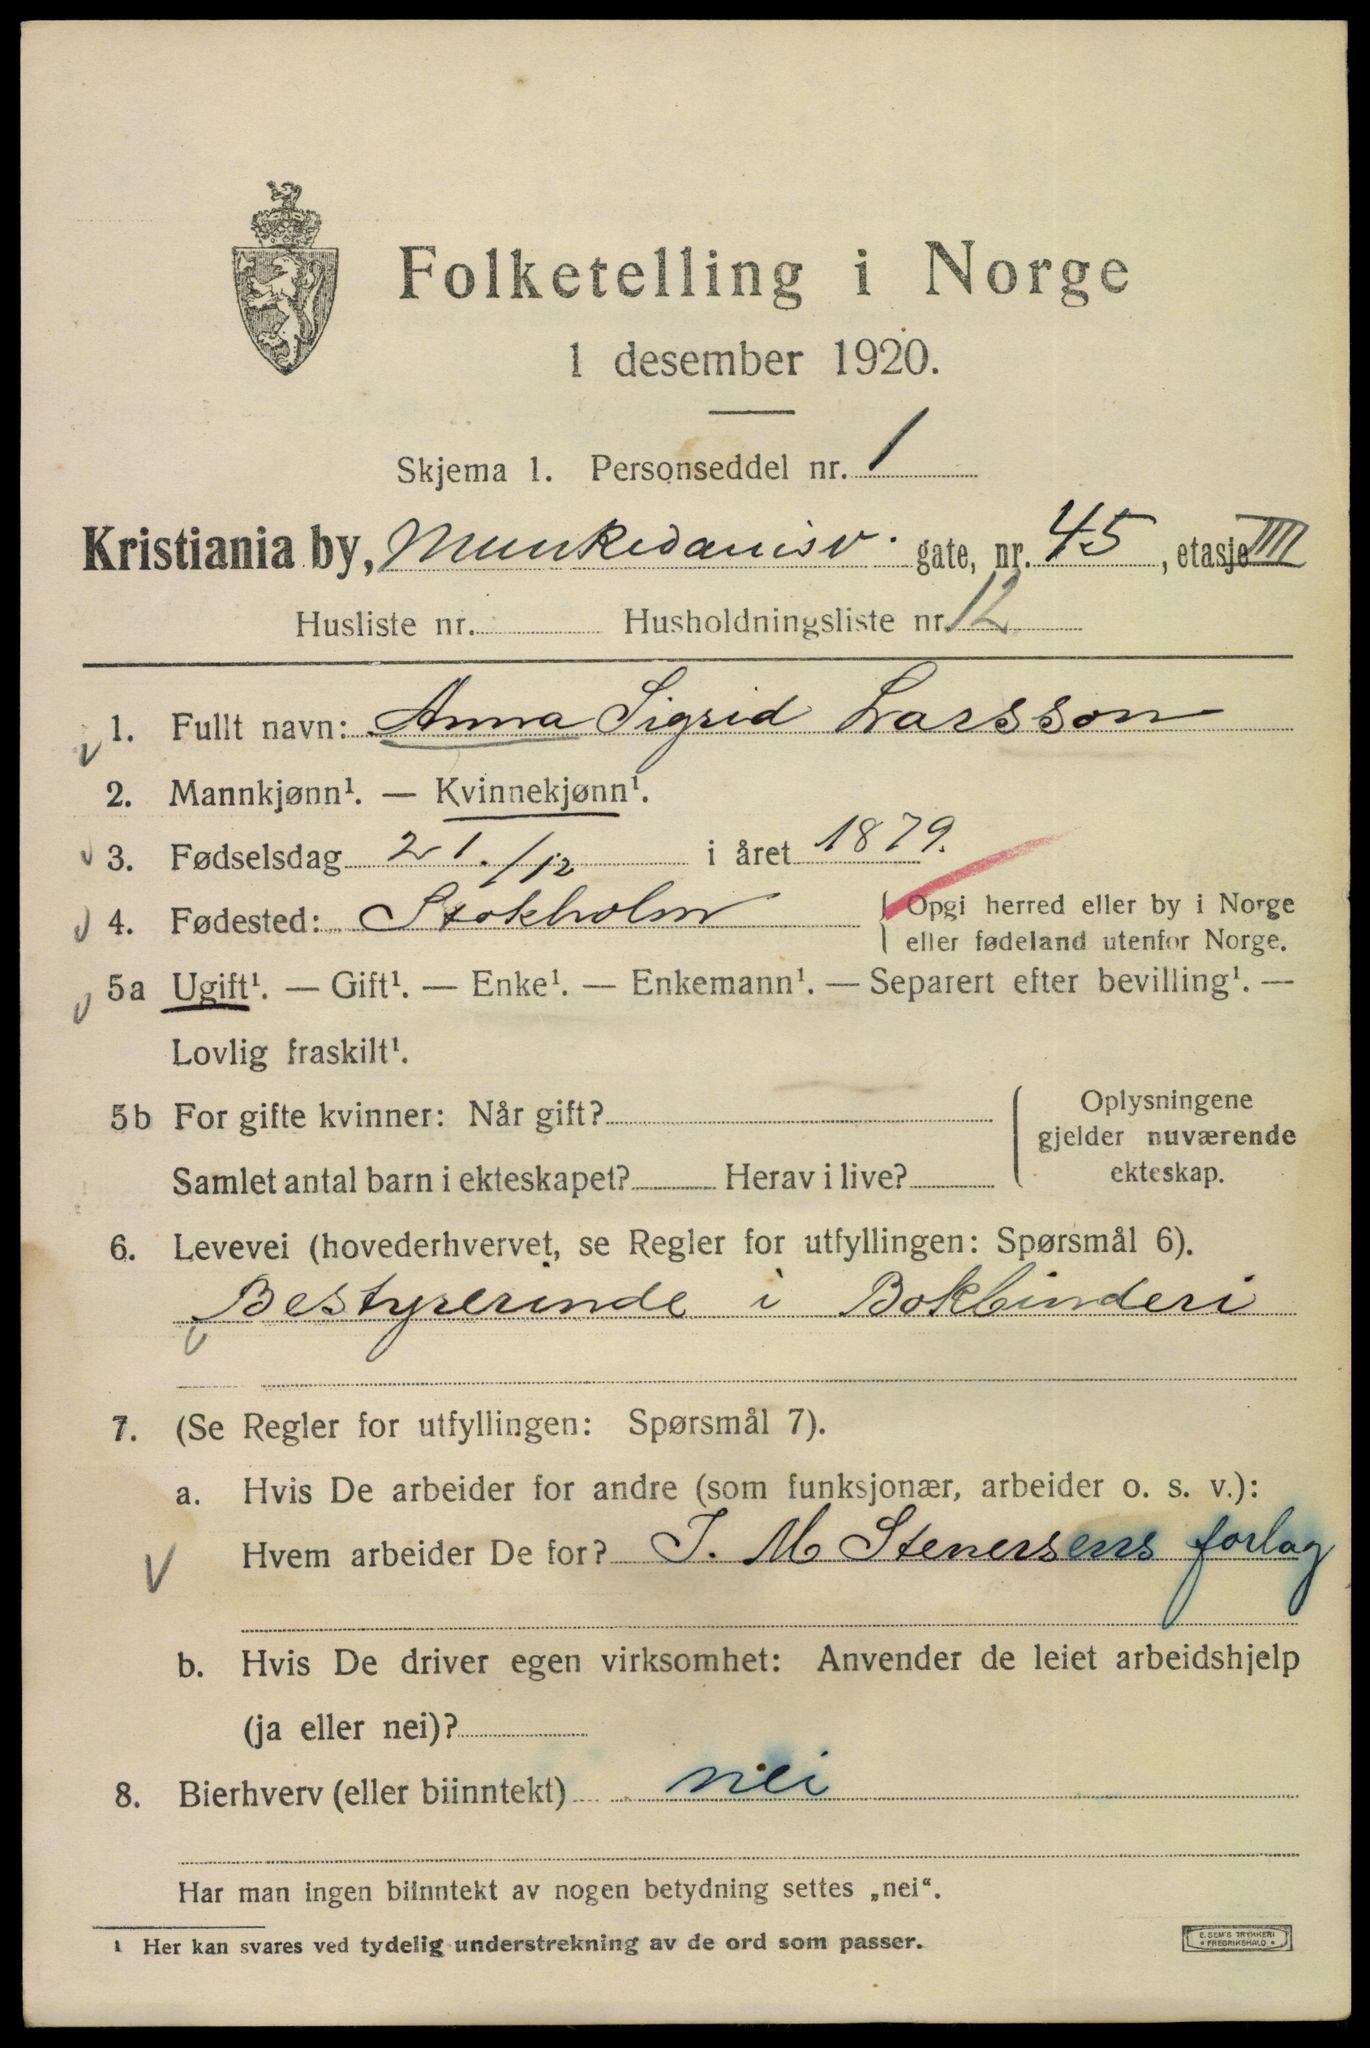 Folketelling i Norge
1 desember 1920.
Skjema 1. Personseddel nr. 1
Kristiania by, Munkedamsv. gate, nr. 45, etasje IIII
Husliste nr. Husholdningsliste nr. 12
1. Fullt navn: Anna Sigrid Larsson
2. Mannkjønn¹. — Kvinnekjønn¹.
3. Fødselsdag 21./12 i året 1879.
4. Fødested: Stokholm { Opgi herred eller by i Norge
eller fødeland utenfor Norge.
5a Ugift¹. — Gift¹. — Enke¹. — Enkemann¹. — Separert efter bevilling¹. —
Lovlig fraskilt¹.
5b For gifte kvinner: Når gift?
Samlet antal barn i ekteskapet? Herav i live?
Oplysningene
gjelder nuværende
ekteskap.
6. Levevei (hovederhvervet, se Regler for utfyllingen: Spørsmål 6).
Bestyrerinde i Bokbinderi
7. (Se Regler for utfyllingen: Spørsmål 7).
a. Hvis De arbeider for andre (som funksjonær, arbeider o. s. v.):
Hvem arbeider De for? J. M Stenersens forlag
b. Hvis De driver egen virksomhet: Anvender de leiet arbeidshjelp
(ja eller nei)?
8. Bierhverv (eller biinntekt) nei
Har man ingen biinntekt av nogen betydning settes „nei“.
¹ Her kan svares ved tydelig understrekning av de ord som passer.
E. SEM'S TRYKKERI
FREDRIKSHALD